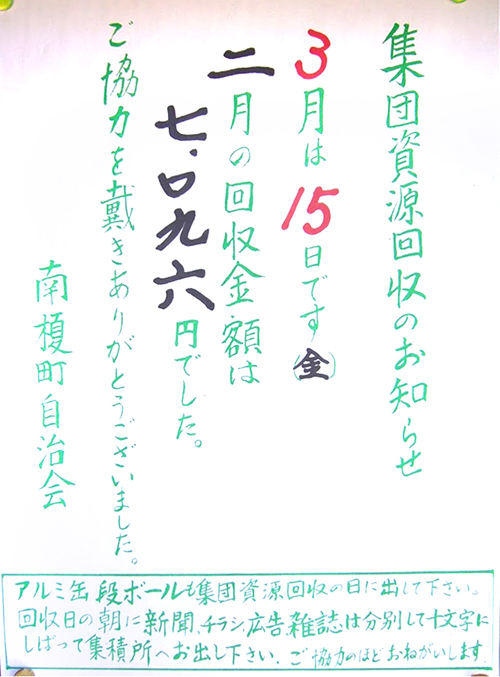 集団資源回収のお知らせ
3月は15日です(金)
二月の回収金額は
七.〇九六円でした。
ご協力を戴きありがとうございました。
南榎町自治会
アルミ缶段ボールも集団資源回収の日に出して下さい。
回収日の朝に新聞、チラシ、広告、雑誌は分別して十文字に
しばって集積所へお出し下さい.ご協力のほどおねがいします